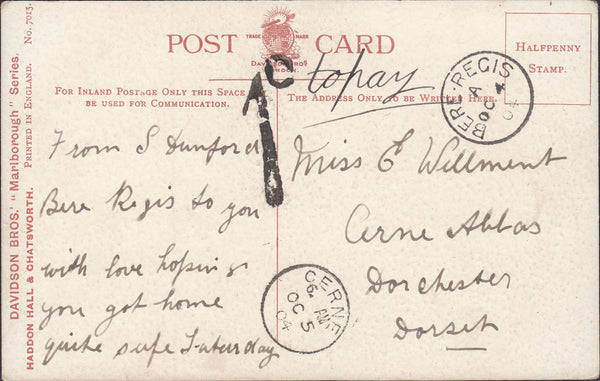 DAVIDSON BROS.' "Marlborough" Series.
HADDON HALL & CHATSWORTH. PRINTED IN ENGLAND. No. 7015.
POST CARD
TRADE MARK
DAVIDSON BROS
LONDON.
HALFPENNY
STAMP.
FOR INLAND POSTAGE ONLY THIS SPACE
BE USED FOR COMMUNICATION.
THE ADDRESS ONLY TO BE WRITTEN HERE.
to pay
BERE-REGIS
A
OC 4
04
From S Dunford
Bere Regis to you
with love hoping
you got home
quite safe Saturday
Miss E Willment
Cerne Abbas
Dorchester
Dorset
CERNE
6 AM
OC 5
04